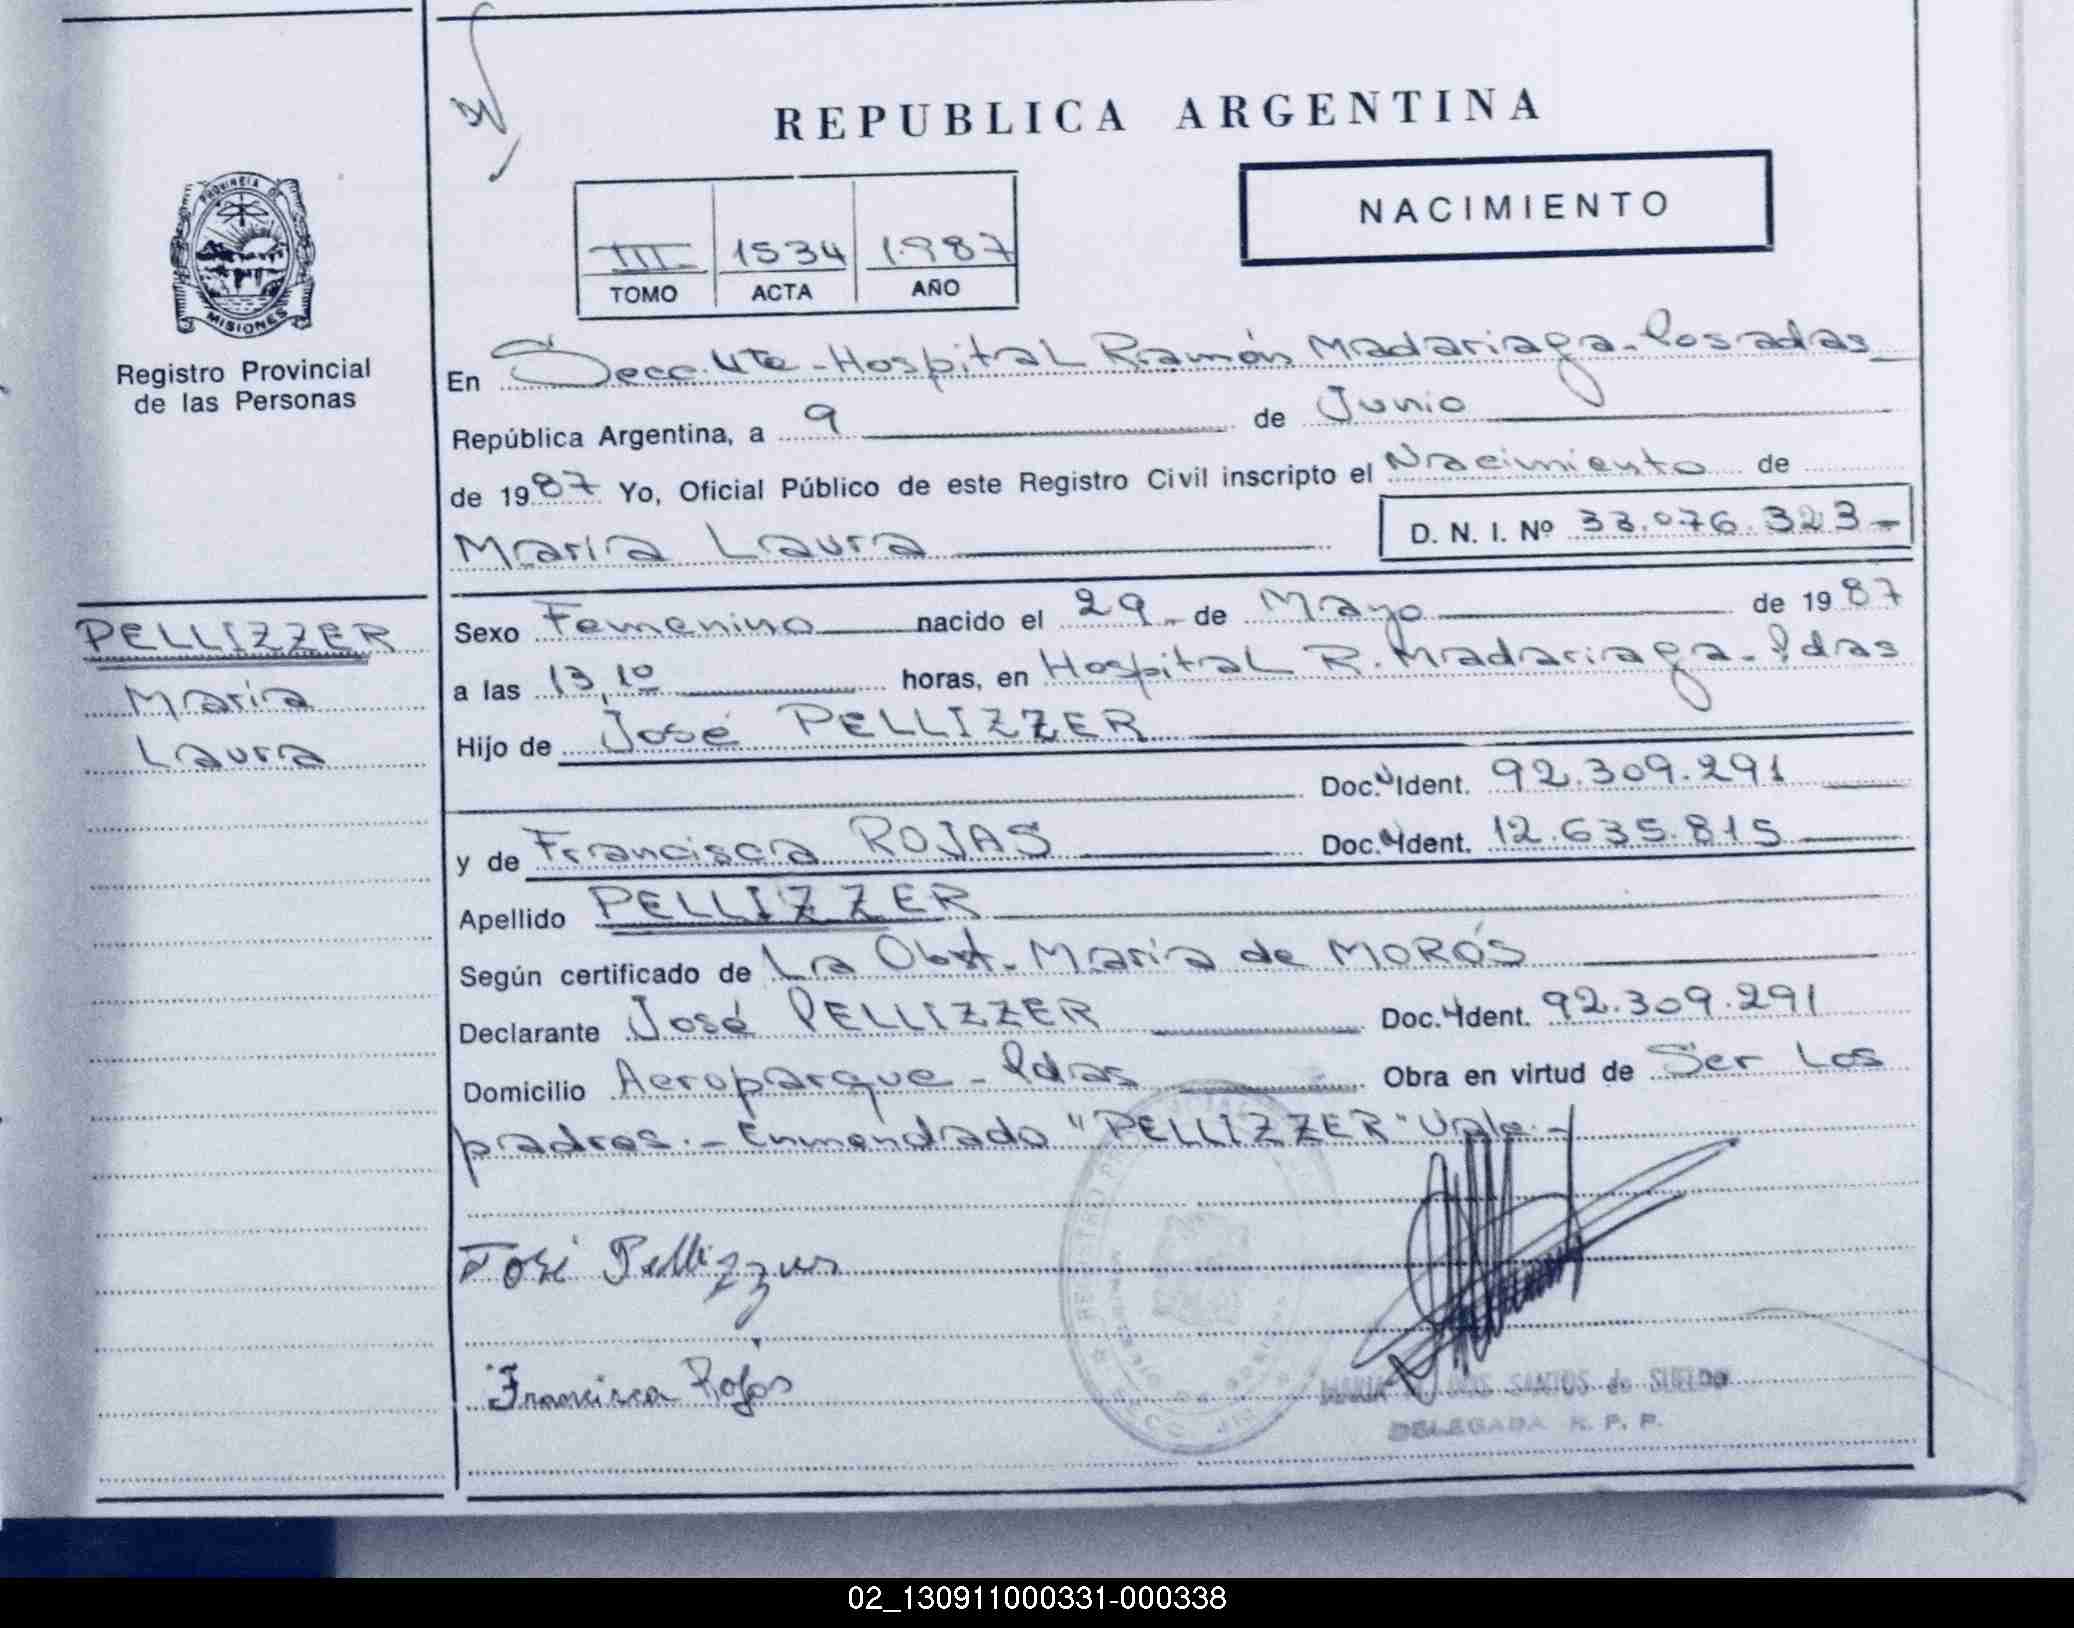 REPUBLICA ARGENTINA
NACIMIENTO
III 1534 1.987
TOMO ACTA AÑO
PROVINCIA DE
MISIONES
Registro Provincial
de las Personas
PELLIZZER
María
Laura
En Secc. 4ta - Hospital Ramón Madariaga - Posadas
República Argentina, a 9 de Junio
de 1987 Yo, Oficial Público de este Registro Civil inscripto el Nacimiento de
María Laura D. N. I. Nº 33.076.323-
Sexo Femenino nacido el 29 - de Mayo de 1987
a las 13,10 horas, en Hospital R. Madariaga - Pdas
Hijo de José PELLIZZER
Doc. Ident. 92.309.291
y de Francisca ROJAS Doc. Ident. 12.635.815
Apellido PELLIZZER
Según certificado de La Obst. María de MORÓS
Declarante José PELLIZZER Doc. Ident. 92.309.291
Domicilio Aeroparque - Pdas Obra en virtud de Ser Los
padres.- Enmendado "PELLIZZER" Vale.-
José Pellizzer
Francisca Rojas
DOS SANTOS de SUELDO
DELEGADA R. P. P.
02_130911000331-000338